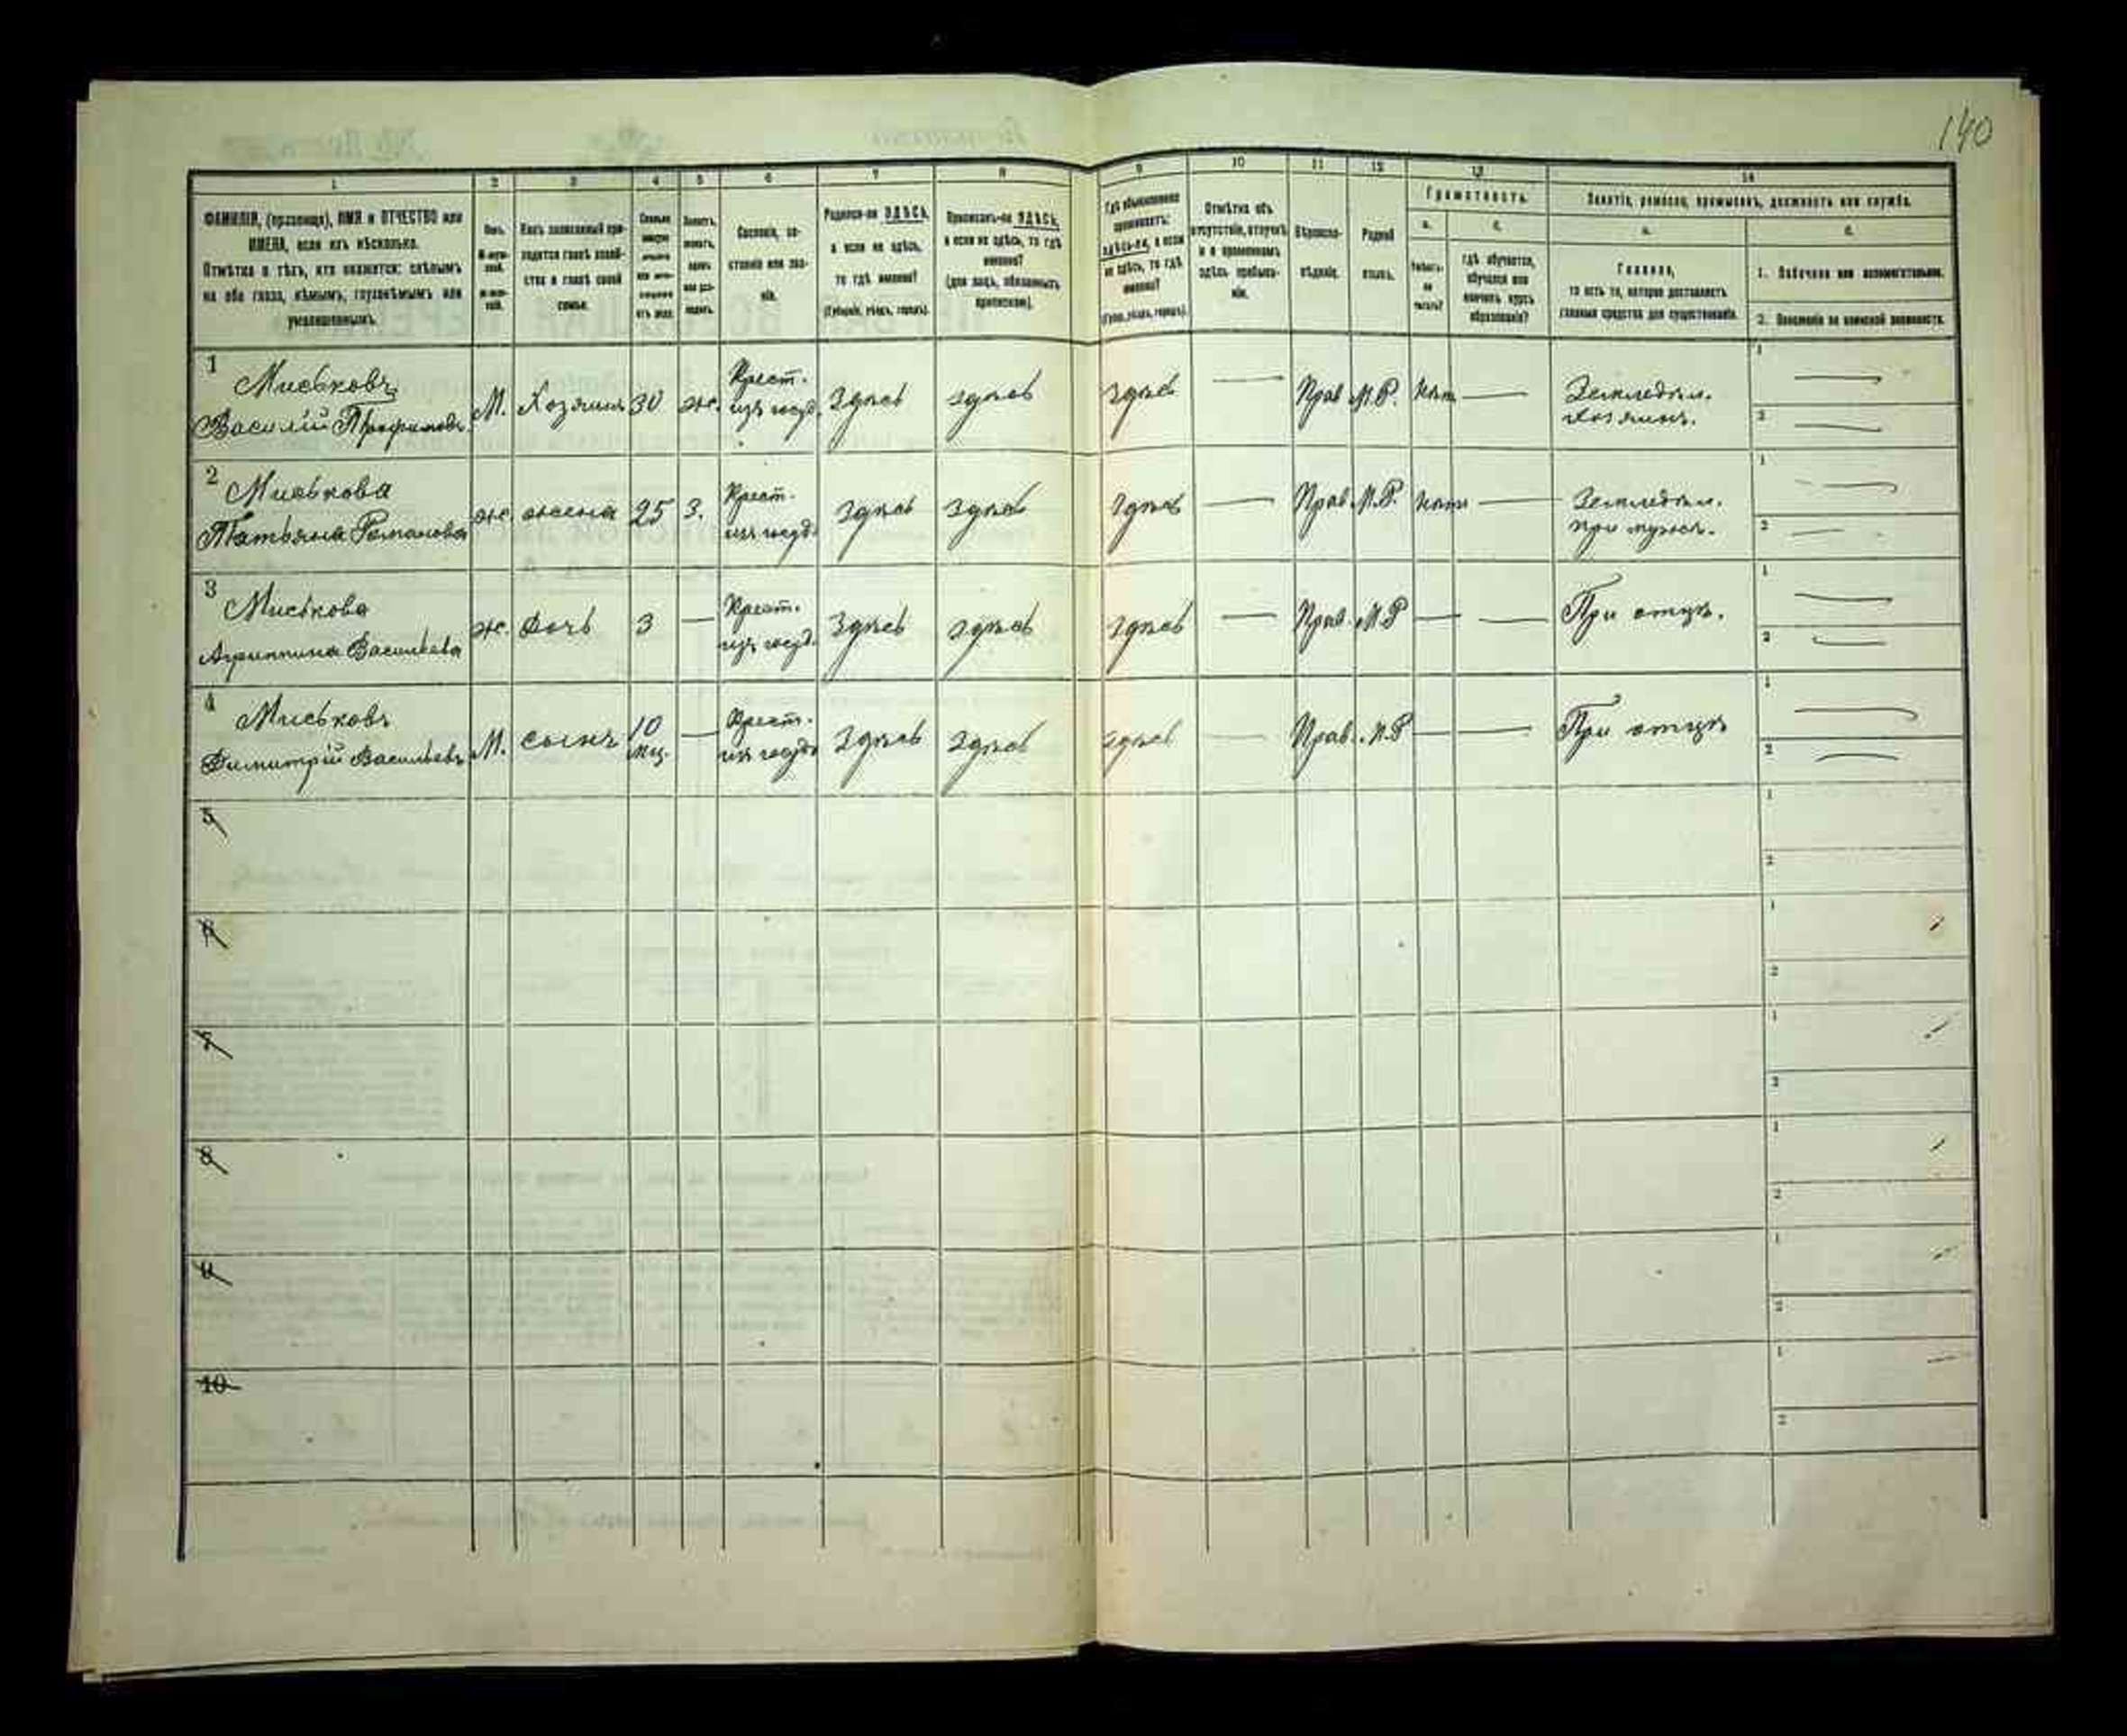 140
1
2
3
4
5
6
7
8
9
10
11
12
13
14
ФАМИЛІЯ, (прозвище), ИМЯ и ОТЧЕСТВО или
ИМЕНА, если ихъ нѣсколько.
Отмѣтка о тѣхъ, кто окажется: слѣпымъ
на оба глаза, нѣмымъ, глухонѣмымъ или
умалишеннымъ.
Полъ.
Какъ записанный при-
ходится главѣ хозяй-
ства и главѣ своей
семьи.
Сословіе, со-
стояніе или зва-
ніе.
Родился-ли ЗДѢСЬ,
а если не здѣсь,
то гдѣ именно?
(Губернія, уѣздъ, городъ).
Приписанъ-ли ЗДѢСЬ,
а если не здѣсь, то гдѣ
именно?
(для лицъ, обязанныхъ
припискою).
Гдѣ обыкновенно
проживаетъ:
здѣсь-ли, а если
не здѣсь, то гдѣ
именно?
(Губ., уѣздъ, городъ).
Отмѣтка объ
отсутствіи, отлучкѣ
и о временномъ
здѣсь пребыва-
ніи.
Вѣроиспо-
вѣданіе.
Родной
языкъ.
Грамотность.
а.
б.
Умѣетъ-
ли
читать?
гдѣ обучается,
обучался или
кончилъ курсъ
образованія?
Занятіе, ремесло, промыселъ, должность или служба.
а.
б.
Главное,
то есть то, которое доставляетъ
главныя средства для существованія.
1. Побочное или вспомогательное.
2. Положеніе по воинской повинности.
1 Миськовъ
Василій Трофимовъ М. Хозяинъ 30 ж. Крест. изъ госуд. Здѣсь здѣсь здѣсь — Прав. М.Р. нѣт — Земледѣл. хозяинъ. 1 — 2 —
2 Миськова
Татьяна Романова ж. жена 25 З. Крест. изъ госуд. здѣсь здѣсь здѣсь — Прав. М.Р. нѣт — Земледѣл. при мужѣ. 1 — 2 —
3 Миськова
Агриппина Васильева ж. дочь 3 — Крест. изъ госуд. здѣсь здѣсь здѣсь — Прав. М.Р — — При отцѣ. 1 — 2 —
4 Миськовъ
Димитрій Васильевъ М. сынъ 10 мц. — Крест. изъ госуд. здѣсь здѣсь здѣсь — Прав. М.Р — — При отцѣ 1 — 2 —
5 1 2
6 1 2
7 1 2
8 1 2
9 1 2
10 1 2